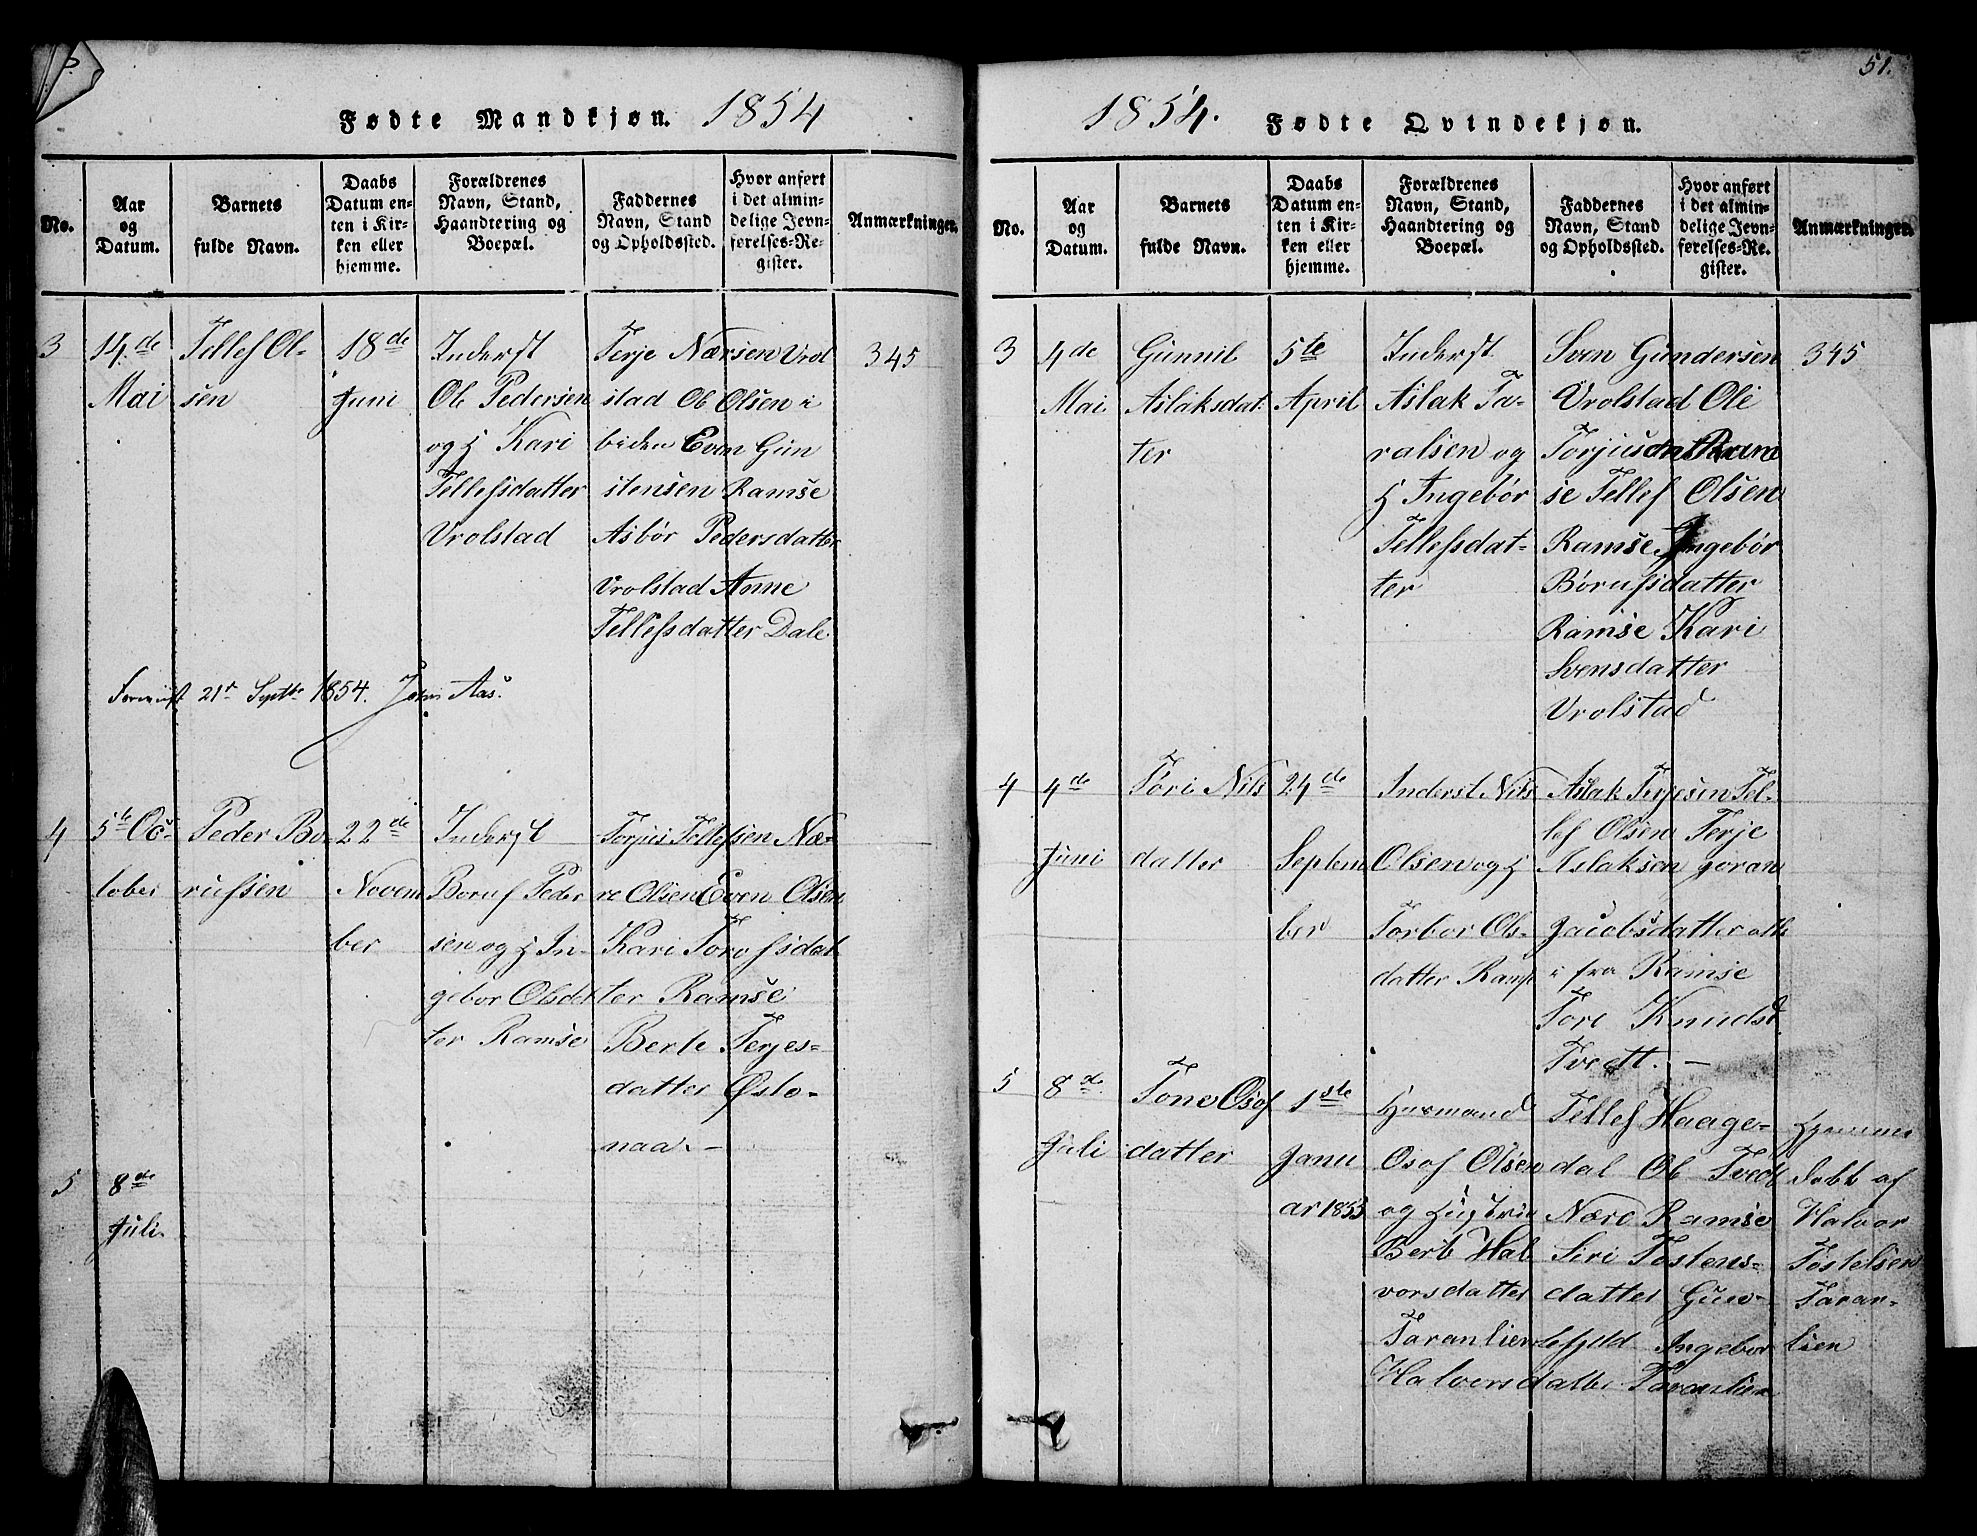 Fødte Mandkjøn. 1854
No.
Aar
og
Datum.
Barnets
fulde Navn.
Daabs
Datum en-
ten i Kir-
ken eller
hjemme.
Forældrenes
Navn, Stand,
Haandtering og
Boepæl.
Faddernes
Navn, Stand
og Opholdssted.
Hvor anført
i det almin-
delige Jevn-
førelses-Re-
gister.
Anmærkninger.
3
14de
Mai
Tellef Ol-
sen
18de
Juni
Inderst
Ole Pedersen
og H Kari
Tellefsdatter
Vrolstad
Terje Nærsen Vrol
stad Ole Olsen i
biden Even Gun
stensen Ramse
Asbør Pedersdatter
Vrolstad Anne
Tellefsdatter Dale
345
21de Septbr 1854. John Aas.
4
5te Oc-
tober
Peder Bo-
rufsen
22de
Novem
ber
Inderst
Boruf Peder
sen og H In-
gebor Olsdat
ter Ramse
Torjus Tellefsen Næ-
re Olsen Even Olsen
Kari Torofsdat
ter Ramse
Berte Terjes-
datter Øslo-
naa. -
5
8de
Juli.
51.
1854. Fødte Qvindekjøn.
No.
Aar
og
Datum.
Barnets
fulde Navn.
Daabs
Datum en-
ten i Kir-
ken eller
hjemme.
Forældrenes
Navn, Stand,
Haandtering og
Boepæl.
Faddernes
Navn, Stand
og Opholdssted.
Hvor anført
i det almin-
delige Jevn-
førelses-Re-
gister.
Anmærkninger.
3
4de
Mai
Gunnil
Aslaksdat
ter
5te
April
Inderst
Aslak Ta-
ralsen og
H Ingebør
Tellefsdat-
ter
Sven Gundersen
Vrolstad Ole
Torjusen Ram
se Tellef Olsen
Ramse Ingebør
Børufsdatter
Ramse Kari
Svensdatter
Vrolstad
345
4
4de
Juni
Tori Nils
datter
24de
Septem
ber
Inderst Nils
Olsen og H
Torbor Ols-
datter Ramse
Aslak Terjesen Tel-
lef Olsen Terje
Aslaksen Joran
Jacobsdatter alle
i fra Ramse
Tore Knudsd
Tveit. -
5
8de
Juli
Tone Osof
datter
1ste
Janu
ar 1855
Husmand
Osof Olsen
og Hustrue
Berte Hal
vorsdatter
Taranlien
Tellef Haage-
dal Ole Tvedt
Nære Ramse
Siri Tostens-
datter Gun-
lefjeld Ingebor
Halvorsdatter Taranlien
Hjemme
døbt af
Halvor
Tostelsen
Taran-
lien